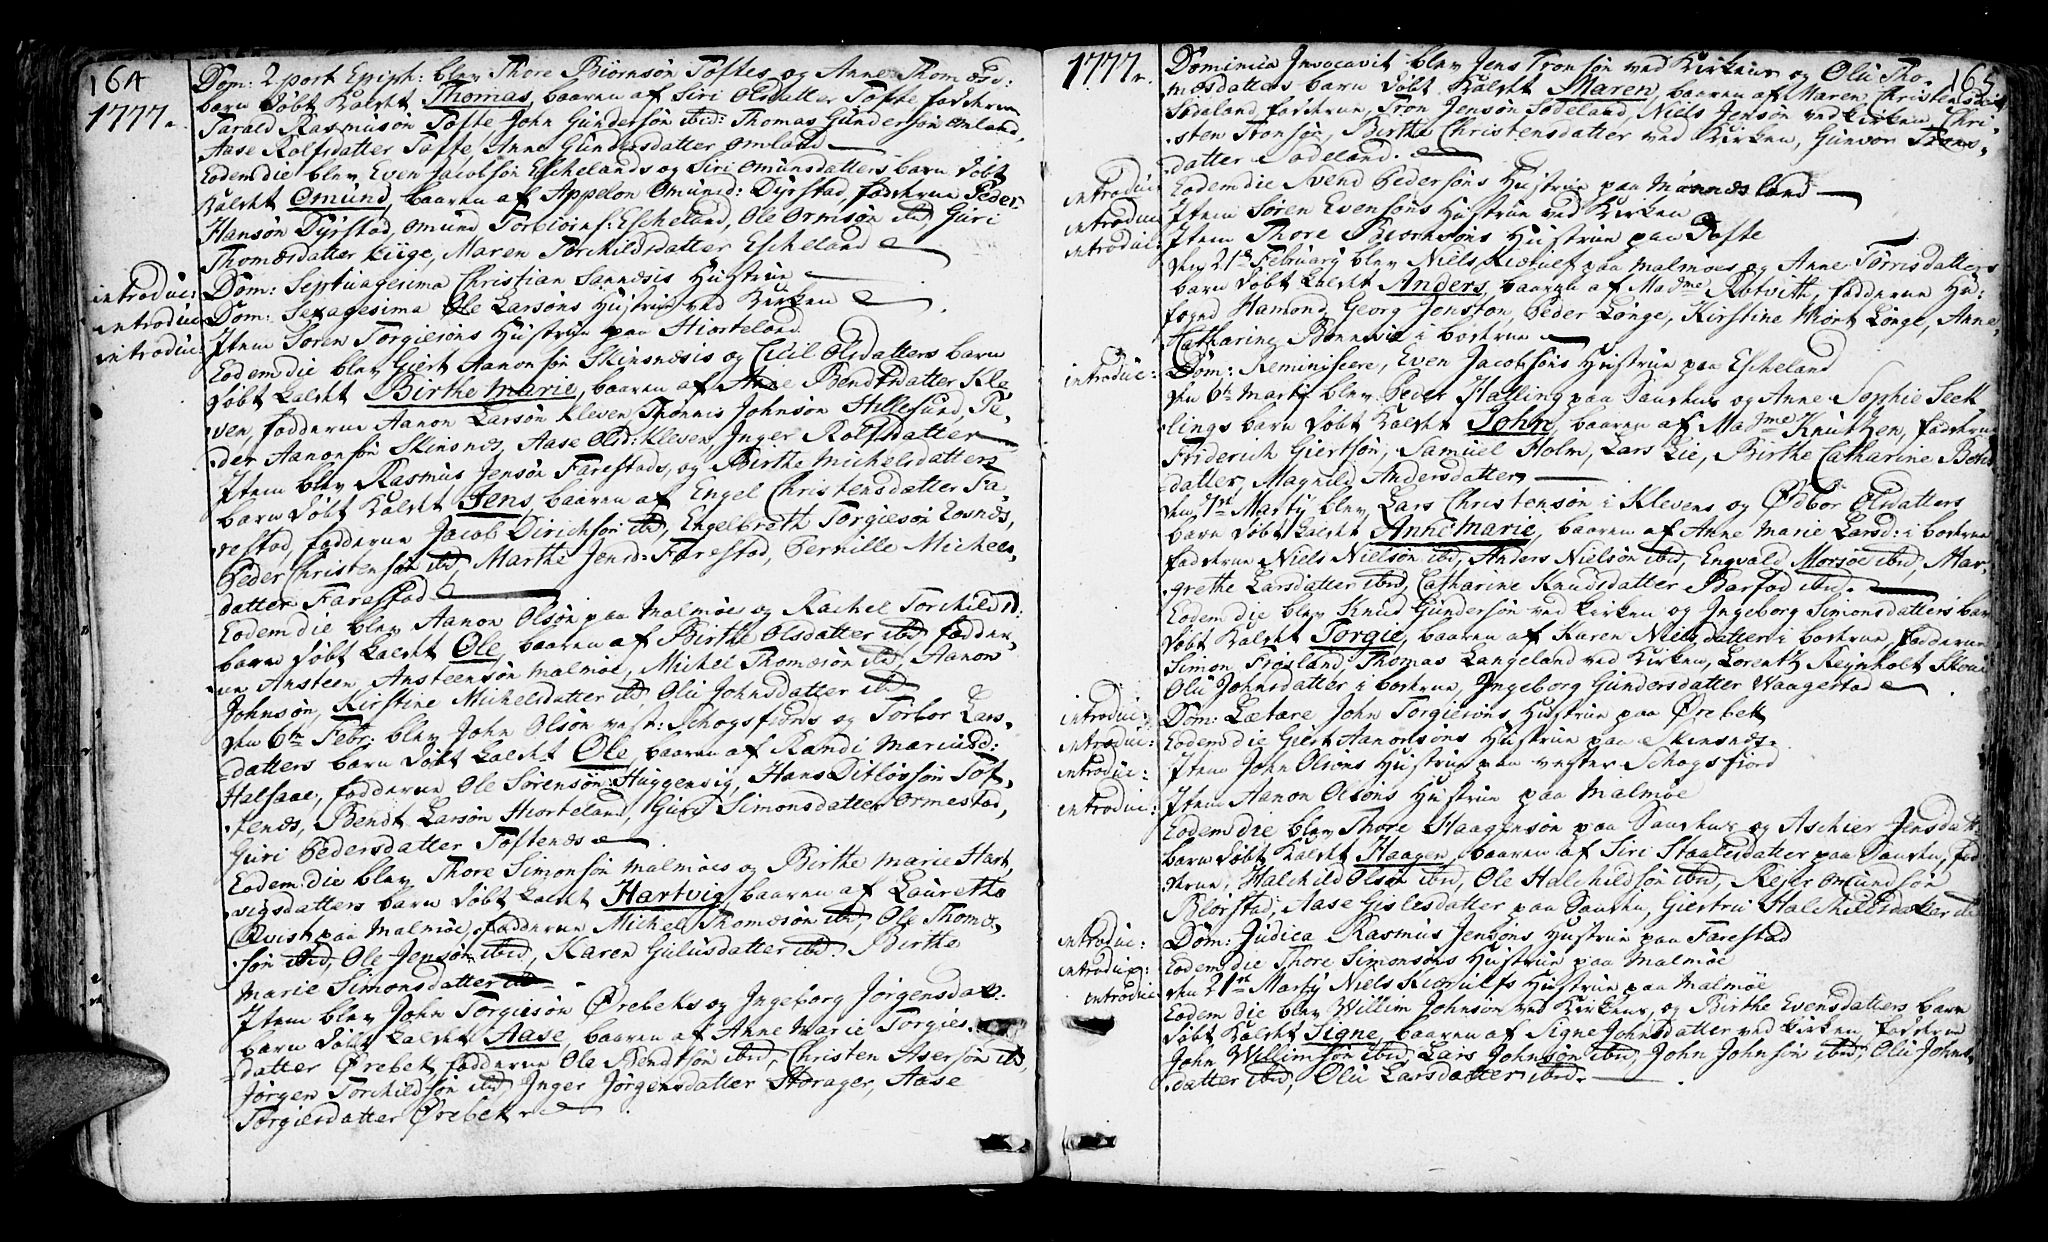 164
1777.
Dom: 2 post Epiph: blev Thore Biørnsøn Toftes og Anne Thomæsd:
barn døbt kaldet Thomas, baaren af Siri Olsdatter Tofte fadderne
Tarald Rasmusøn Tofte John Gundersøn ibid: Thomas Gundersøn Omland,
Aase Rolfsdatter Tofte Anne Gundersdatter Omland
Eodem die blev Even Jacobsøn Eschelands og Siri Omunsdatters barn døbt
kaldet Omund, baaren af Appelon Omund: Dyrstad, fadderne Peder
Hansøn Dyrstad, Omund Torbiøins: Escheland, Ole Ormsøn ibid, Guri
Thomæsdatter Kiige, Maren Torchildsdatter Escheland
introduc: Dom: Septuagesima Christian Sannesis Hustrue
introduc: Dom: Sexagesima Ole Larsøns Hustrue ved Kirken
introduc: Item Søren Torgiersøns Hustrue paa Hiorteland
Eodem die blev Giert Aanonsøn Skinsnæsis og Cicil Olsdatters barn
døbt kaldet Birthe Marie, baaren af Anne Bendtsdatter Kle,
ven, fadderne Aanon Larsøn Kleven Thønnis Johnsøn Hillesund, Pe,
der Aanonsøn Skinsnæs, Aase Olsd: Kleven Inger Rolfsdatter
Item blev Rasmus Jensøn Farestads, og Birthe Michelsdatters
barn døbt kaldet Jens, baaren af Engel Christensdatter Fa,
restad, fadderne Jacob Dirichsøn ibid, Engelbrath Torgiesøn Eosnes,
Peder Christensøn ibid, Marthe Jensd: Farestad, Pernille Michels,
datter Farestad
Eodem die blev Aanon Olsøn paa Malmøe og Rachel Torchildsd:
barn døbt kaldet Ole, baaren af Birthe Olsdatter ibid, fadder,
ne Ansteen Ansteensøn Malmøe, Michel Thomæsøn ibid, Aanon
Johnsøn, Kirstine Michelsdatter ibid, Olu Johnsdatter ibid
den 6te Febr: blev John Olsøn vest: Schogsfiords og Torbor Lars,
datters barn døbt kaldet Ole, baaren af Randi Mariusd:
Halsaae, fadderne Ole Sørensøn Huggenvig, Hans Ditløvsøn Tof,
tenæs, Bendt Larsøn Hiorteland, Guri Simonsdatter Ormestad,
Guri Pedersdatter Toftenæs
Eodem die blev Thore Simonsøn Malmøes og Birthe Marie Hart,
vigsdatters barn døbt kaldet Hartvig, baaren af Laurethe
Qvist paa Malmøe, fadderne Michel Thomæsøn ibid, Ole Thomæ,
søn ibid, Ole Jensøn ibid, Karen Gulusdatter ibid. Birthe
Marie Simonsdatter ibid
Item blev John Torgiesøn Ørebeks og Ingeborg Jørgensdat:
barn døbt kaldet Aase, baaren af Anne Marie Torgies,
datter Ørebek, fadderne Ole Bendtsøn ibid, Christen Asersøn ibid,
Jørgen Torchildsøn ibid, Inger Jørgensdatter Storager, Aase
Torgiesdatter Ørebek
165
1777.
Dominica Invocavit blev Jens Tronsøn ved Kirken og Olu Tho,
mæsdatters barn døbt kaldet Maren, baaren af Maren Christensdat
Sodeland, fadderne, Tron Jensøn Sodeland, Niels Jensøn ved Kirken, Chri,
sten Tronsøn, Birthe Christensdatter ved Kirken, Gunvor Trons,
datter Sodeland.
introduc: Eodem die Svend Pedersøns Hustrue paa Mannesland
introduc: Item Søren Evensøns Hustrue ved Kirken
introduc: Item Thore Biørnsøns Hustrue paa Tofte
den 21de February blev Niels Kiærulf paa Malmøes og Anne Torrisdatters
barn døbt kaldet Anders, baaren af Madme Rotvitt, fadderne Hr:
fogd Hamond, Georg Jonston, Peder Longe, Kirstine Hiort Longe, Anne
Catharine Bonnevie i boerne
introduc: Dom: Reminiscere, Even Jacobsøns Hustrue paa Escheland
den 6te Marty blev Peder Halling paa Sanskus og Anne Sophie Seek
lings barn døbt kaldet John, baaren af Madme Knutzen, fadderne
Friderich Giertsøn, Samuel Holm, Lars Lie, Birthe Catharine
datter, Magnild Andersdatter
den Marty blev Lars Christensøn i Klevens og Ødbor Olsdatters
barn døbt kaldet Anne Marie, baaren af Anne Marie Larsd: i
fadderne Niels Nielsøn ibid, Anders Nielsøn ibid, Engvald Morsøe ibid, Mar,
grethe Larsdatter ibid, Catharine Knudsdatter Barfod ibid.
Eodem die blev Knud Gundersøn ved Kirken og Ingeborg Simonsdatters barn
døbt kaldet Torgie, baaren af Karen Nielsdatter i, fadderne
Simon Frøsland, Thomas Langeland ved Kirken, Lorentz Reinholt
Olu Johnsdatter i, Ingeborg Gundersdatter Waagestad
introduc: Dom: Lætare John Torgiesøns Hustrue paa Ørebek
introduc: Eodem die Giert Aanonsøns Hustrue paa Skinsnæs.
introduc: Item John Olsøns Hustrue paa vester Schogsfiord
introduc: Item Aanon Olsøns Hustrue paa Malmøe
Eodem die blev Thore Haagensøn paa Sanskus og Aschier Jensdatt:
barn døbt kaldet Haagen, baaren af Siri Staalesdatter paa Sansku, fad
derne, Halchild Olsøn ibid, Ole Halchildsøn ibid, Rejer Omundsøn
Blørstad, Aase Gislesdatter paa Sansku, Giertru Halchildsdatter ibid
introduc: Dom: Judica Rasmus Jensøns Hustrue paa Farestad
introduc: Eodem die Thore Simonsøns Hustrue paa Malmøe
introduc den 21de Marty Niels Kiærulfs Hustrue paa Malmøe
Eodem die blev Willim Johnsøn ved Kirkens og Birthe Evensdatters barn
døbt kaldet Signe, baaren af Signe Johnsdatter ved Kirken, fadderne
John Willimsøn ibid, Lars Johnsøn ibid, John Johnsøn ibid, Olu Johns,
datter ibid, Olu Larsdatter ibid.